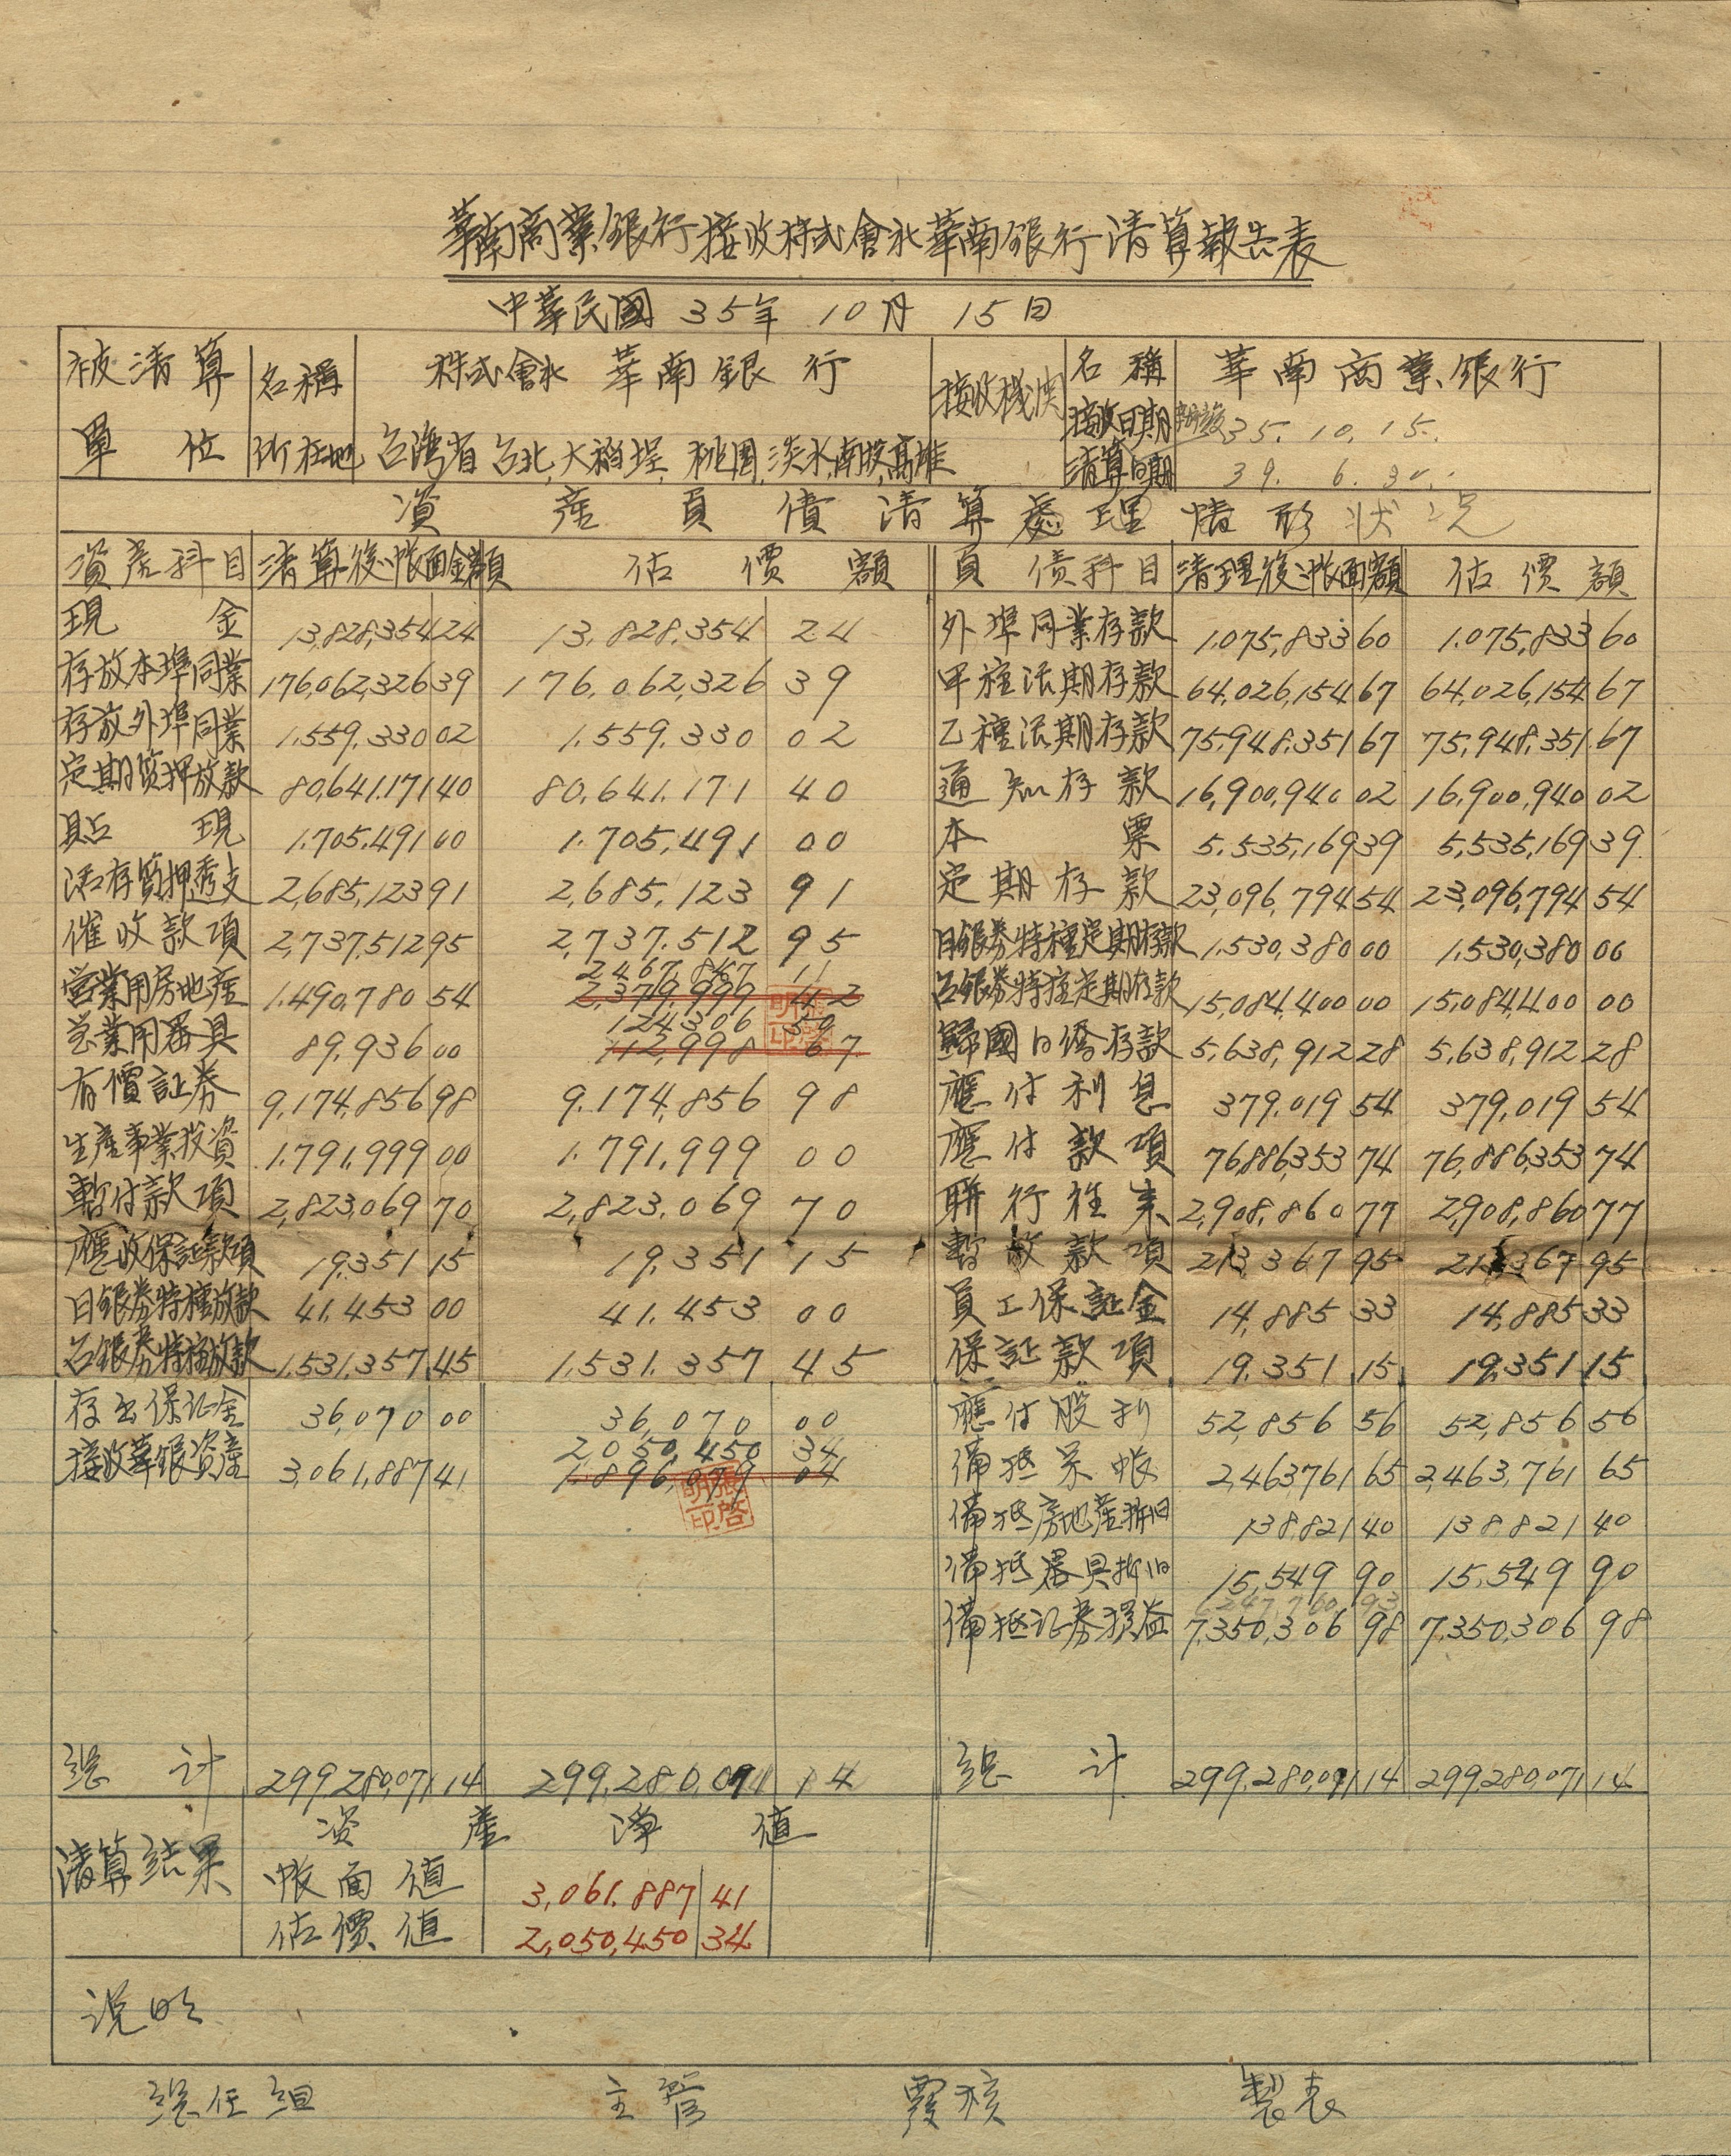 華南商業銀行接收株式會社華南銀行清算報告表
中華民國 35年 10月 15日
被清算單位 名稱 株式會社 華南銀行 接收機關 名稱 華南商業銀行
接收日期 35. 10. 15.
所在地 台灣省台北,大稻埕,桃園,淡水,南投,高雄 清算日期 39. 6. 30.
資產負債清算處理情形 狀況
資產科目 清算後帳面金額 估價額 負債科目 清理後帳面額 估價額
現金 13,828,354 24 13,828,354 24 外埠同業存款 1,075,833 60 1,075,833 60
存放本埠同業 176,062,326 39 176,062,326 39 甲種活期存款 64,026,154 67 64,026,154 67
存放外埠同業 1,559,330 02 1,559,330 02 乙種活期存款 75,948,351 67 75,948,351 67
定期質押放款 80,641,171 40 80,641,171 40 通知存款 16,900,940 02 16,900,940 02
貼現 1,705,491 00 1,705,491 00 本票 5,535,169 39 5,535,169 39
活存質押透支 2,685,123 91 2,685,123 91 定期存款 23,096,794 54 23,096,794 54
催收款項 2,737,512 95 2,737,512 95 日銀券特種定期存款 1,530,380 00 1,530,380 00
2,467,867 11
營業用房地產 1,490,780 54 2,379,999 42 台銀券特種定期存款 15,084,400 00 15,084,400 00
124,306 59
營業用器具 89,936 00 112,998 67 歸國日僑存款 5,638,912 28 5,638,912 28
有價証券 9,174,856 98 9,174,856 98 應付利息 379,019 54 379,019 54
生產事業投資 1,791,999 00 1,791,999 00 應付款項 76,886,353 74 76,886,353 74
暫付款項 2,823,069 70 2,823,069 70 聯行往來 2,908,860 77 2,908,860 77
應收保証款項 19,351 15 19,351 15 暫收款項 213,367 95 213,367 95
日銀券特種放款 41,453 00 41,453 00 員工保証金 14,885 33 14,885 33
台銀券特種放款 1,531,357 45 1,531,357 45 保証款項 19,351 15 19,351 15
存出保证金 36,070 00 36,070 00 應付股利 52,856 56 52,856 56
2,050,450 34
接收華銀資產 3,061,887 41 1,896,079 04 備抵呆帳 2,463,761 65 2,463,761 65
備抵房地產折旧 138,821 40 138,821 40
備抵器具折旧 15,549 90 15,549 90
6,247,760 93
備抵证券損益 7,350,306 98 7,350,306 98
總計 299,280,071 14 299,280,071 14 總計 299,280,071 14 299,280,071 14
清算結果 資產淨值
帳面值 3,061,887 41
估價值 2,050,450 34
说明
總任組 主管 覆核 製表